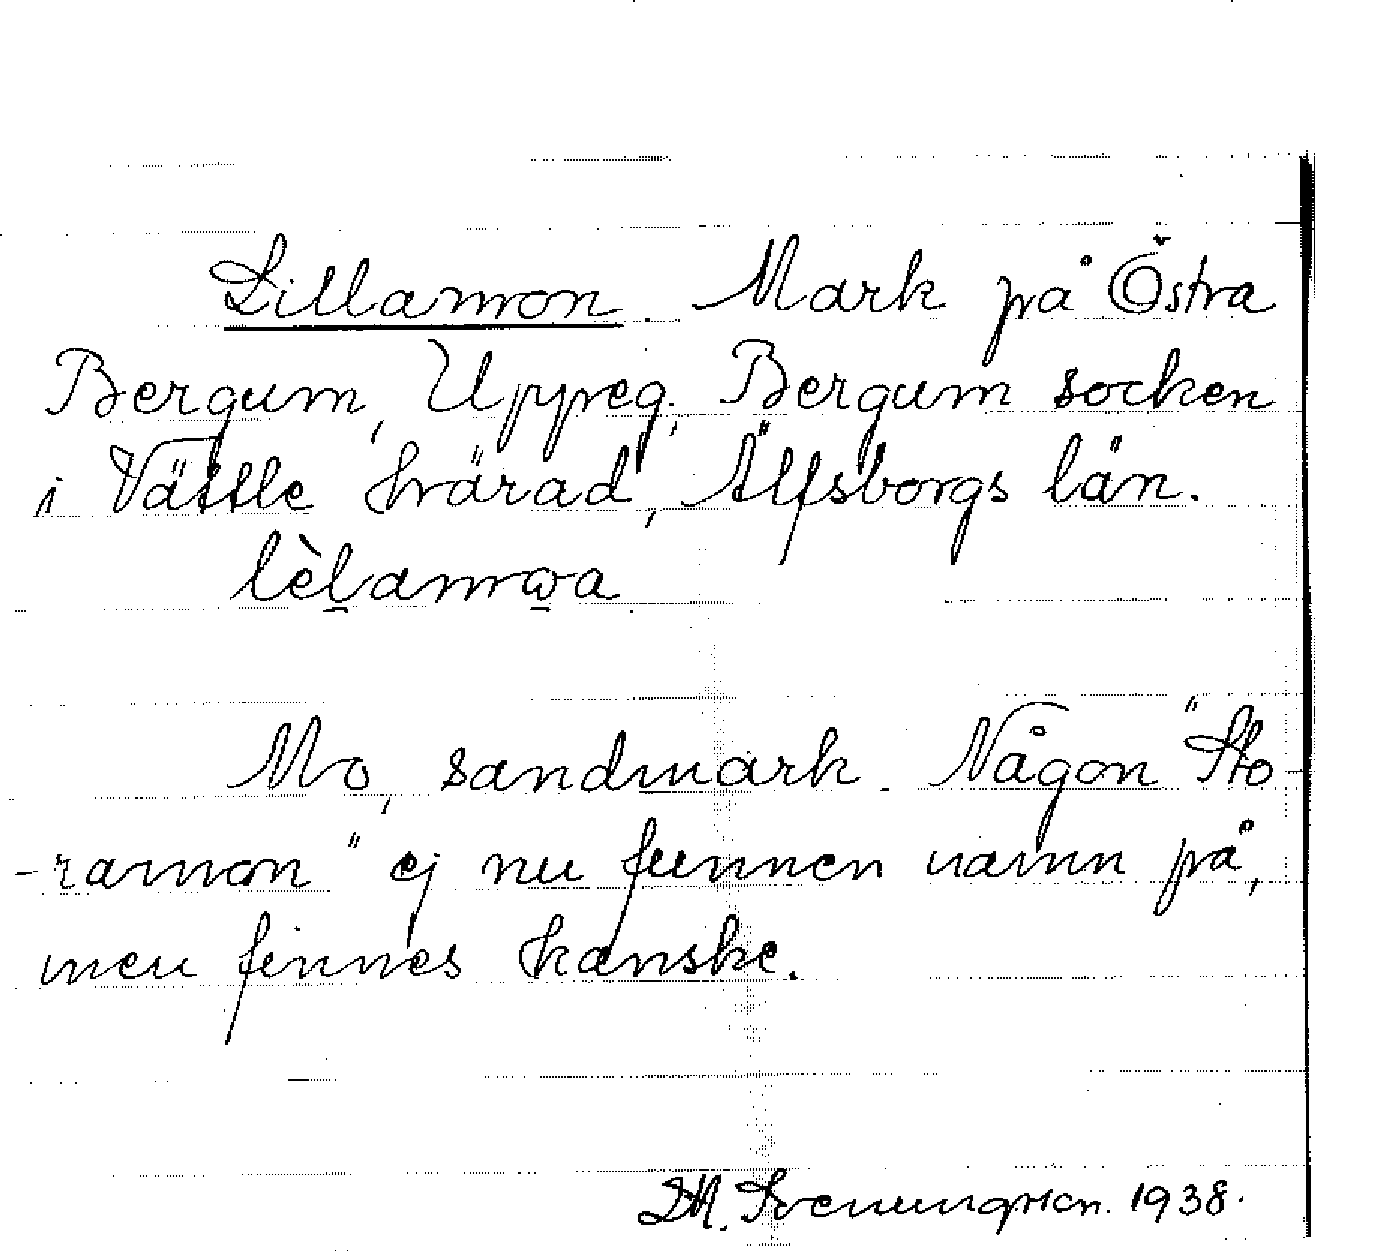 Lillamon. Mark på Östra
Bergum, Uppeg, Bergum socken
i Vättle härad, Älfsborgs län.
lèl̠amω̠a
Mo, sandmark. Någon "Sto
-ramon" ej nu funnen namn på,
men finnes kanske.
Svenungsson. 1938.